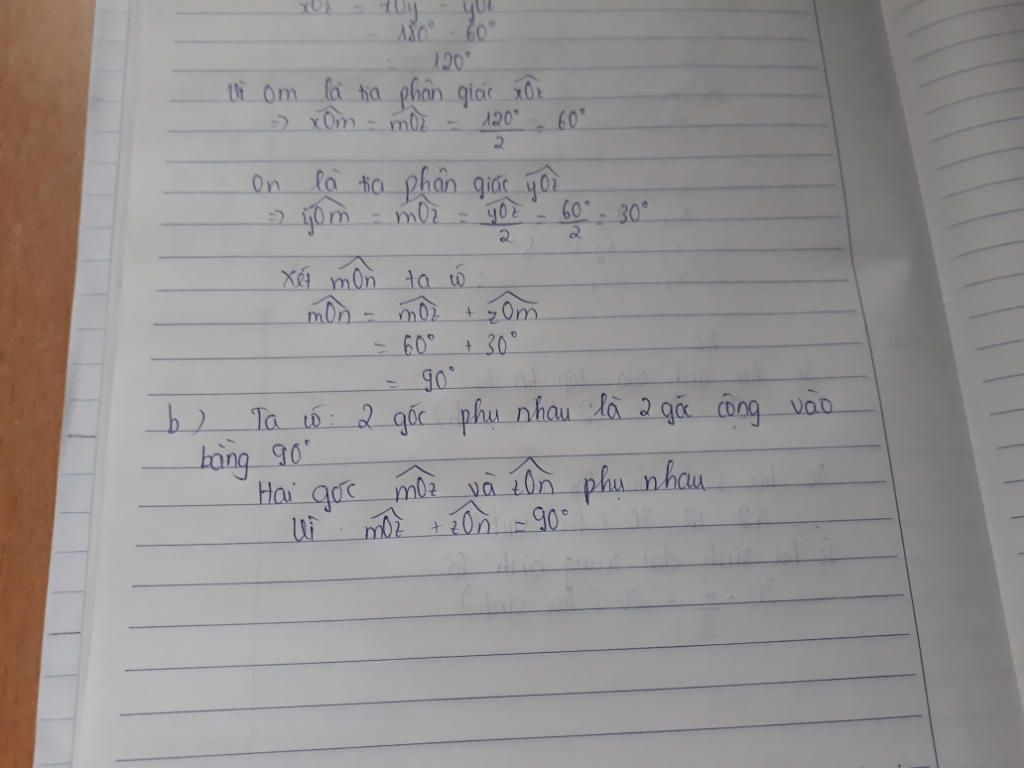 xOz = xOy - yOz
= 180° - 60°
= 120°
Vì Om là tia phân giác xOz
=> xOm = mOz = 120°/2 = 60°
On là tia phân giác yOz
=> yOm = mOz = yOz/2 = 60°/2 = 30°
Xét mOn ta có:
mOn = mOz + zOm
= 60° + 30°
= 90°
b) Ta có: 2 góc phụ nhau là 2 góc cộng vào
bằng 90°
Hai góc mOz và zOn phụ nhau
Vì mOz + zOn = 90°